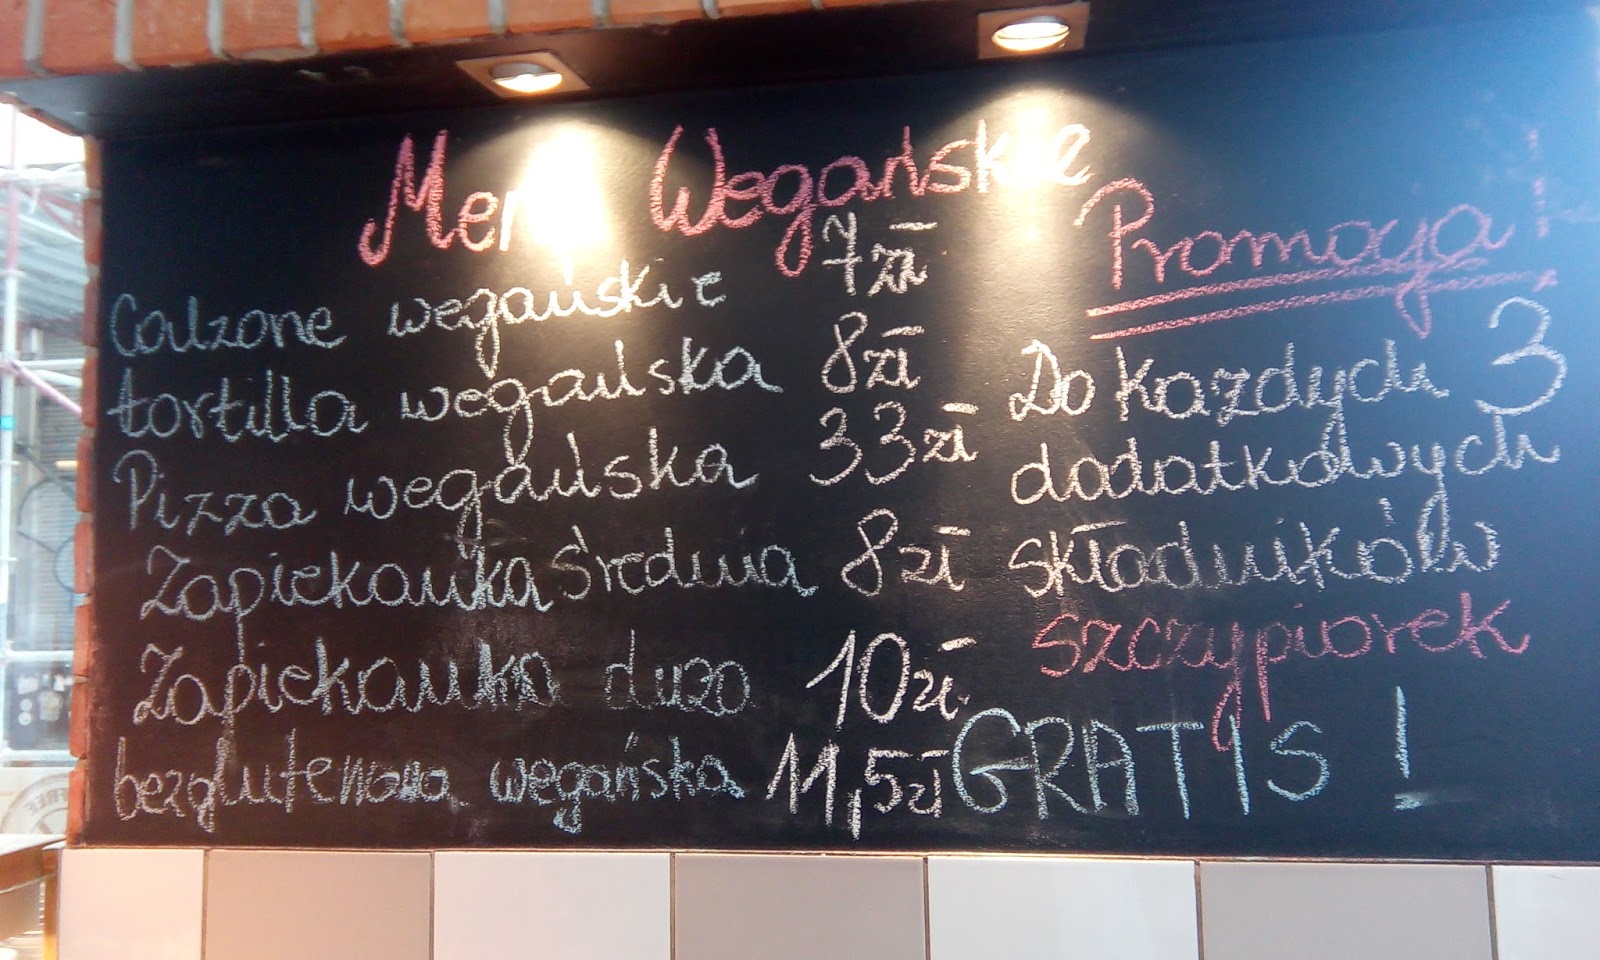 Menu Wegańskie
Calzone wegańskie 7zł
tortilla wegańska 8zł
Pizza wegańska 33zł
Zapiekanka średnia 8zł
Zapiekanka duża 10zł
bezglutenowa wegańska 11,5zł
Promocja!
Do każdych 3
dodatkowych
składników
szczypiorek
GRATIS!